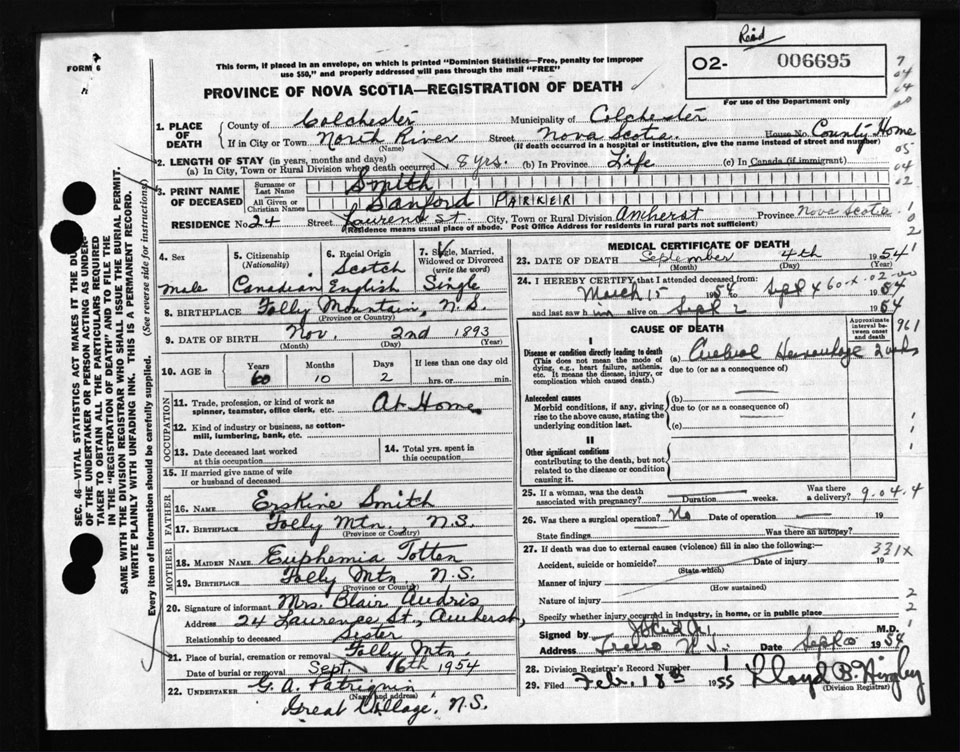 Read
FORM 6
This form, if placed in an envelope, on which is printed "Dominion Statistics—Free, penalty for improper
use $50," and properly addressed will pass through the mail "FREE"
02- 006695
For use of the Department only
PROVINCE OF NOVA SCOTIA—REGISTRATION OF DEATH
1. PLACE OF DEATH
County of Colchester Municipality of Colchester
If in City or Town North River Street Nova Scotia House No. County Home
(Name) (If death occurred in a hospital or institution, give the name instead of street and number)
2. LENGTH OF STAY (in years, months and days)
(a) In City, Town or Rural Division where death occurred 8 yrs. (b) In Province Life (c) In Canada (if immigrant)
3. PRINT NAME OF DECEASED
Surname or Last Name Smith
All Given or Christian Names Sanford PARKER
RESIDENCE No. 24 Street Laurence St. City, Town or Rural Division Amherst Province Nova Scotia
(Residence means usual place of abode. Post Office Address for residents in rural parts not sufficient)
4. Sex Male
5. Citizenship (Nationality) Canadian
6. Racial Origin Scotch English
7. Single, Married, Widowed or Divorced (write the word) Single
8. BIRTHPLACE Folly Mountain, N.S.
(Province or Country)
9. DATE OF BIRTH Nov. 2nd 1893
(Month) (Day) (Year)
10. AGE in Years 60 Months 10 Days 2 If less than one day old hrs. or min.
OCCUPATION
11. Trade, profession, or kind of work as spinner, teamster, office clerk, etc. At Home
12. Kind of industry or business, as cotton-mill, lumbering, bank, etc.
13. Date deceased last worked at this occupation
14. Total yrs. spent in this occupation
15. If married give name of wife or husband of deceased
FATHER
16. NAME Erskine Smith
17. BIRTHPLACE Folly Mtn., N.S.
(Province or Country)
MOTHER
18. MAIDEN NAME Euphemia Totten
19. BIRTHPLACE Folly Mtn, N.S.
(Province or Country)
20. Signature of informant Mrs. Blair
Address 24 Laurence St., Amherst,
Relationship to deceased Sister
21. Place of burial, cremation or removal Folly Mtn.
Date of burial or removal Sept. 6th 1954
22. UNDERTAKER G. A. Patriquin
(Name and address)
Great Village, N.S.
MEDICAL CERTIFICATE OF DEATH
23. DATE OF DEATH September 4th 1954
(Month) (Day) (Year)
24. I HEREBY CERTIFY, that I attended deceased from:
March 15 1954 to Sept 4 1954
and last saw him alive on Sept 2 1954
60-X-02-00
CAUSE OF DEATH
Approximate interval between onset and death
I
Disease or condition directly leading to death
(This does not mean the mode of dying, e.g., heart failure, asthenia, etc. It means the disease, injury, or complication which caused death.)
(a) Cerebral Hemorrhage 2 weeks
due to (or as a consequence of)
Antecedent causes
Morbid conditions, if any, giving rise to the above cause, stating the underlying condition last.
(b)
due to (or as a consequence of)
(c)
II
Other significant conditions
contributing to the death, but not related to the disease or condition causing it.
25. If a woman, was the death associated with pregnancy? Duration weeks. Was there a delivery? 9.04.4
26. Was there a surgical operation? No Date of operation 19
State findings Was there an autopsy?
27. If death was due to external causes (violence) fill in also the following:— 331X
Accident, suicide or homicide? Date of injury 19
(State which)
Manner of injury
(How sustained)
Nature of injury
Specify whether injury occurred in industry, in home, or in public place
Signed by M.D.
Address Truro N.S. Date 1954
28. Division Registrar's Record Number
29. Filed Feb. 18th 1955 Lloyd B. Hingley
(Division Registrar)
SEC. 46—VITAL STATISTICS ACT MAKES IT THE DUTY
OF THE UNDERTAKER OR PERSON ACTING AS UNDERTAKER
TO OBTAIN ALL THE PARTICULARS REQUIRED
IN THE "REGISTRATION OF DEATH" AND TO FILE THE
SAME WITH THE DIVISION REGISTRAR WHO SHALL ISSUE THE BURIAL PERMIT.
WRITE PLAINLY WITH UNFADING INK. THIS IS A PERMANENT RECORD.
Every item of information should be carefully supplied. (See reverse side for instructions)